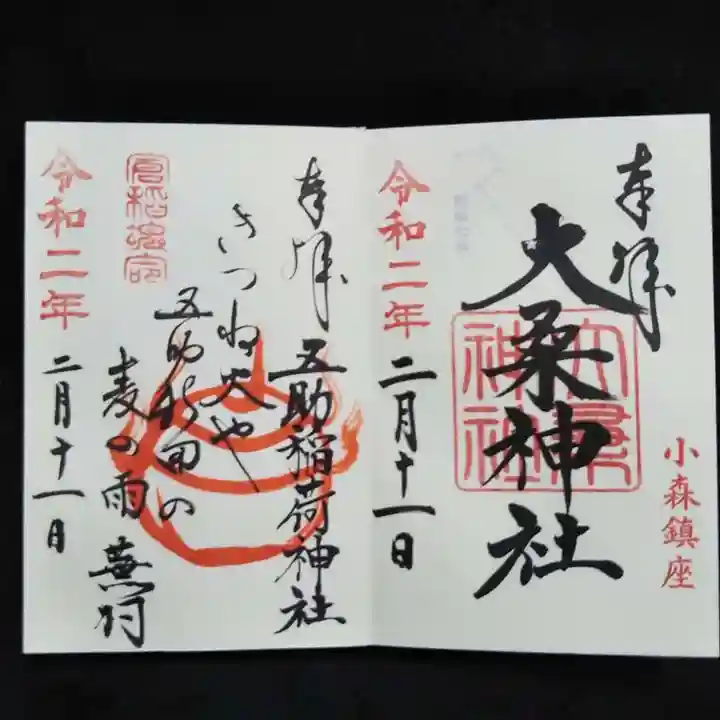 奉拝
小森鎮座
大桑神社
大桑神社
令和二年 二月十一日
奉拝
五助稲荷神社
きつね火や
五助新田の
麦の雨 蕪村
令和二年 二月十一日